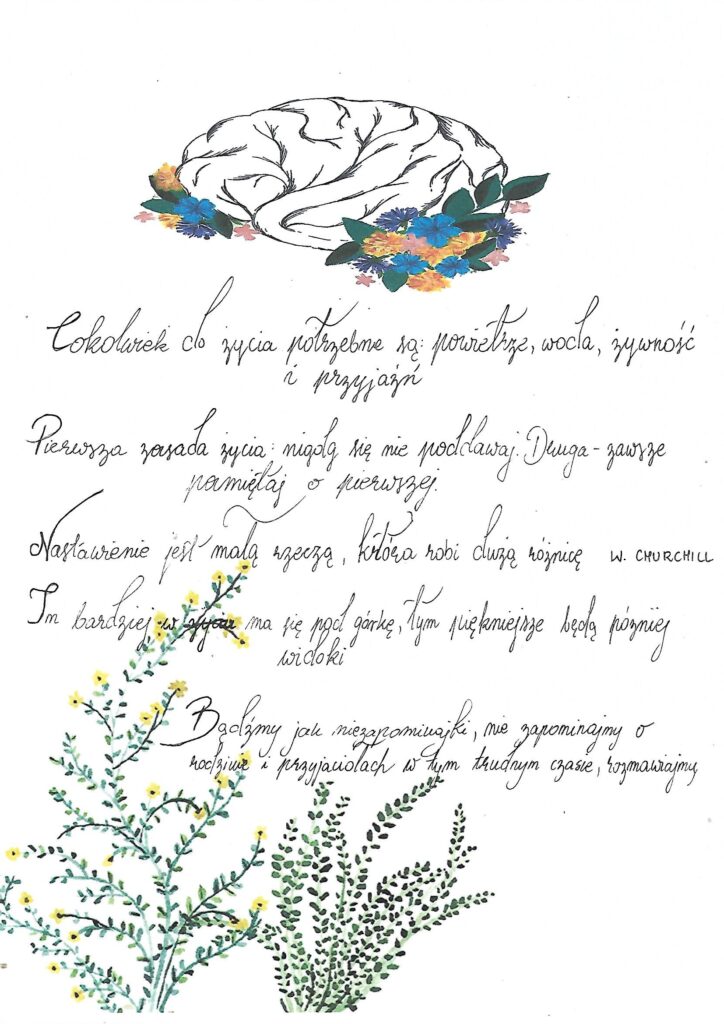 Cokolwiek do życia potrzebne są: powietrze, woda, żywność
i przyjaźń
Pierwsza zasada życia: nigdy się nie poddawaj. Druga - zawsze
pamiętaj o pierwszej.
Nastawienie jest małą rzeczą, która robi dużą różnicę W. CHURCHILL
Im bardziej w życiu ma się pod górkę, tym piękniejsze będą później
widoki
Bądźmy jak niezapominajki, nie zapominajmy o
rodzinie i przyjaciołach w tym trudnym czasie, rozmawiajmy